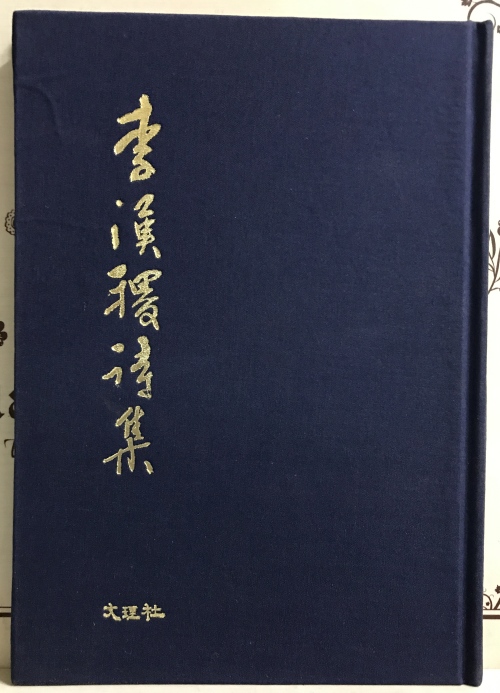 李漢稷詩集
文理社